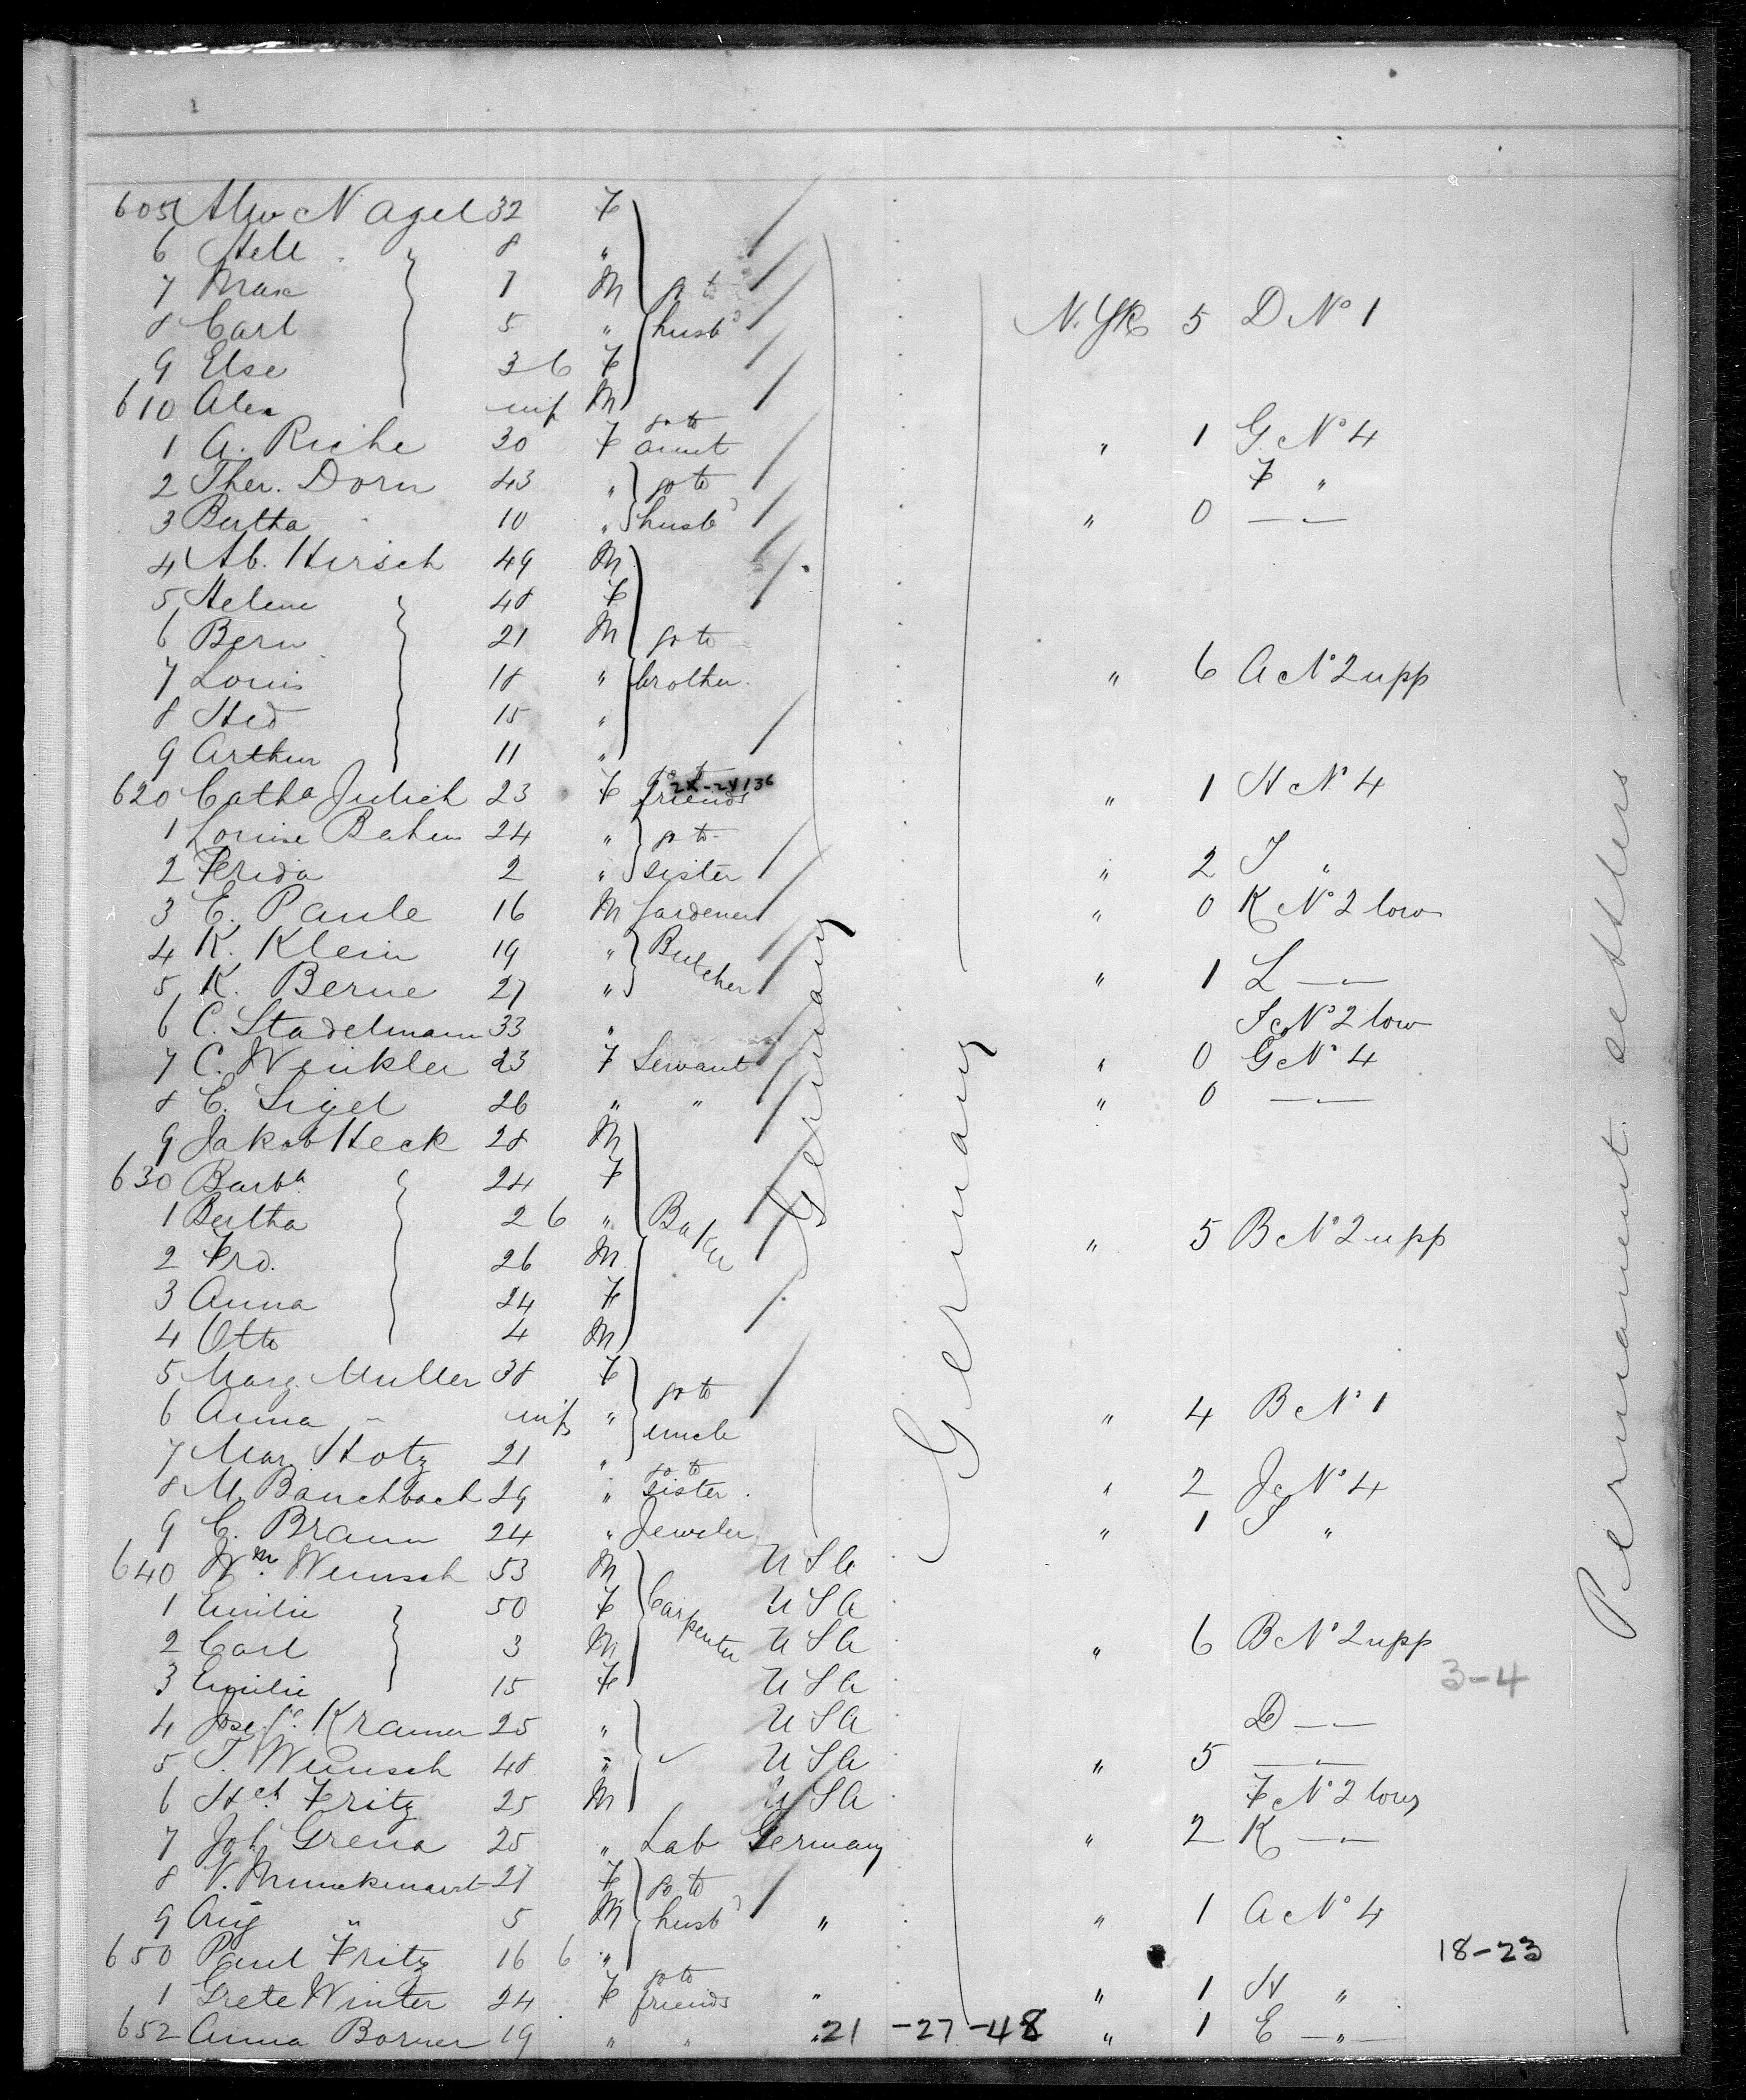 605 Alw Nagel 32 F
6 Hell 8 "
7 Max 7 M go to
8 Carl 5 " husbd N.Yk 5 D No 1
9 Else 3 6 F
610 Alex inf M
1 A. Riche 30 F go to aunt " 1 G No 4
2 Ther. Dorn 43 " go to F "
3 Bertha 10 " husbd " 0 — " —
4 Ab. Hirsch 49 M
5 Helene 48 F
6 Bern 21 M go to
7 Louis 18 " brother. " 6 A No 2 upp
8 Hed 15 "
9 Arthur 11 "
620 Catha Julich 23 F go to friends 2X-24136 " 1 H No 4
1 Louise Bahm 24 " go to
2 Frida 2 " sister " 2 J "
3 E. Paule 16 M Gardener " 0 K No 2 low
4 K. Klein 19 " Butcher
5 K. Berne 27 " " 1 L — " —
6 C. Stadelmann 33 " J No 2 low
7 C. Winkler 23 F Servant " 0 G No 4
8 E. Sigel 26 " " " 0 — " —
9 Jakob Heck 28 M
630 Barba 24 F
1 Bertha 2 6 " Baker
2 Frd. 26 M " 5 B No 2 upp
3 Anna 24 F
4 Otto 4 M
5 Marg. Muller 38 F go to
6 Anna " inf " uncle " 4 B No 1
7 Mar. Hotz 21 "
8 M. Bauchbach 29 " go to sister. " 2 J No 4
9 C. Braun 24 " Jeweler " 1 J "
640 Wm. Wunsch 53 M U S A
1 Emilie 50 F Carpenter U S A
2 Carl 3 M U S A " 6 B No 2 upp
3 Emilie 15 F U S A 3-4
4 Kramer 25 " U S A D — " —
5 T. Wunsch 48 " U S A " 5 — " —
6 Hch Fritz 25 M U S A F No 2 low
7 Joh. Grena 25 " Lab Germany " 2 K — " —
8 27 F go to
9 Aug " 5 M husbd " " 1 A No 4
650 Paul Fritz 16 6 " 18-23
1 Grete Winter 24 F go to friends " " 1 H "
652 Anna Borner 19 " " " 21 -27 -48 " 1 E — " —
Germany
Germany
Permanent settlers